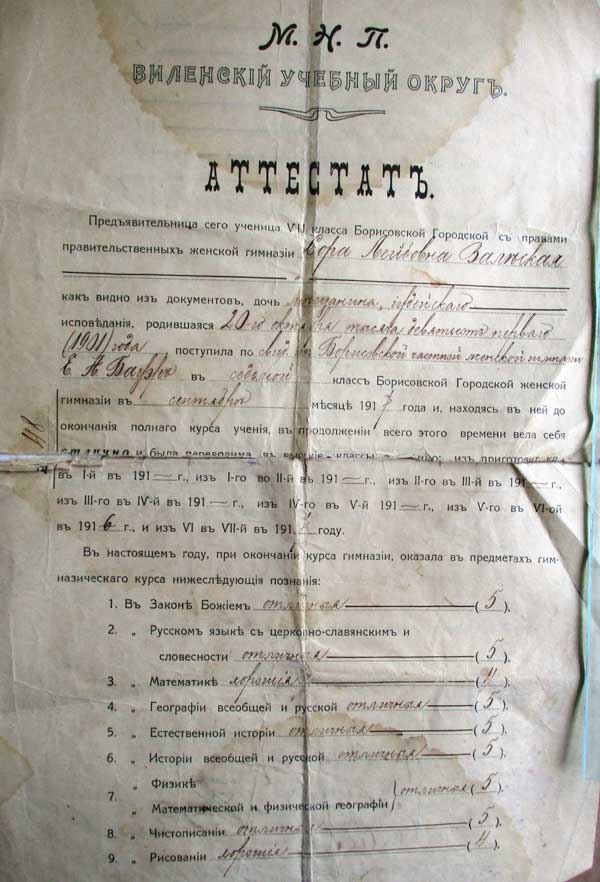 М. Н. П.
ВИЛЕНСКІЙ УЧЕБНЫЙ ОКРУГЪ.
АТТЕСТАТЪ.
Предъявительница сего ученица VII класса Борисовской Городской съ правами
правительственныхъ женской гимназіи Сора Лейбовна Залѣская
какъ видно изъ документовъ, дочь мѣщанина, іудейскаго
исповѣданія, родившаяся 20-го октября тысяча девятьсотъ перваго
(1901) года поступила по свид. Борисовской частной женской гимназіи
Е. А. въ седьмой классъ Борисовской Городской женской
гимназіи въ сентябрѣ мѣсяцѣ 1917 года и, находясь въ ней до
окончанія полнаго курса ученія, въ продолженіи всего этого времени вела себя
отлично и была переводима въ высшіе классы изъ приготов.
въ I-й въ 191— г., изъ I-го во II-й въ 191— г., изъ II-го въ III-й въ 191— г.,
изъ III-го въ IV-й въ 191— г., изъ IV-го въ V-й 191— г., изъ V-го въ VI-ой
въ 1916 г., и изъ VI въ VII-й въ 1917 году.
Въ настоящемъ году, при окончаніи курса гимназіи, оказала въ предметахъ гим-
назическаго курса нижеслѣдующія познанія:
1. Въ Законѣ Божіемъ отличныя (5),
2. „ Русскомъ языкѣ съ церковно-славянскимъ и
словесности отличныя (5),
3. „ Математикѣ хорошія (4),
4. „ Географіи всеобщей и русской отличныя (5),
5. „ Естественной исторіи отличныя (5),
6. „ Исторіи всеобщей и русской отличныя (5),
7. „ Физикѣ
„ Математической и физической географіи отличныя (5),
8. „ Чистописаніи отличныя (5),
9. „ Рисованіи хорошія (4),
48